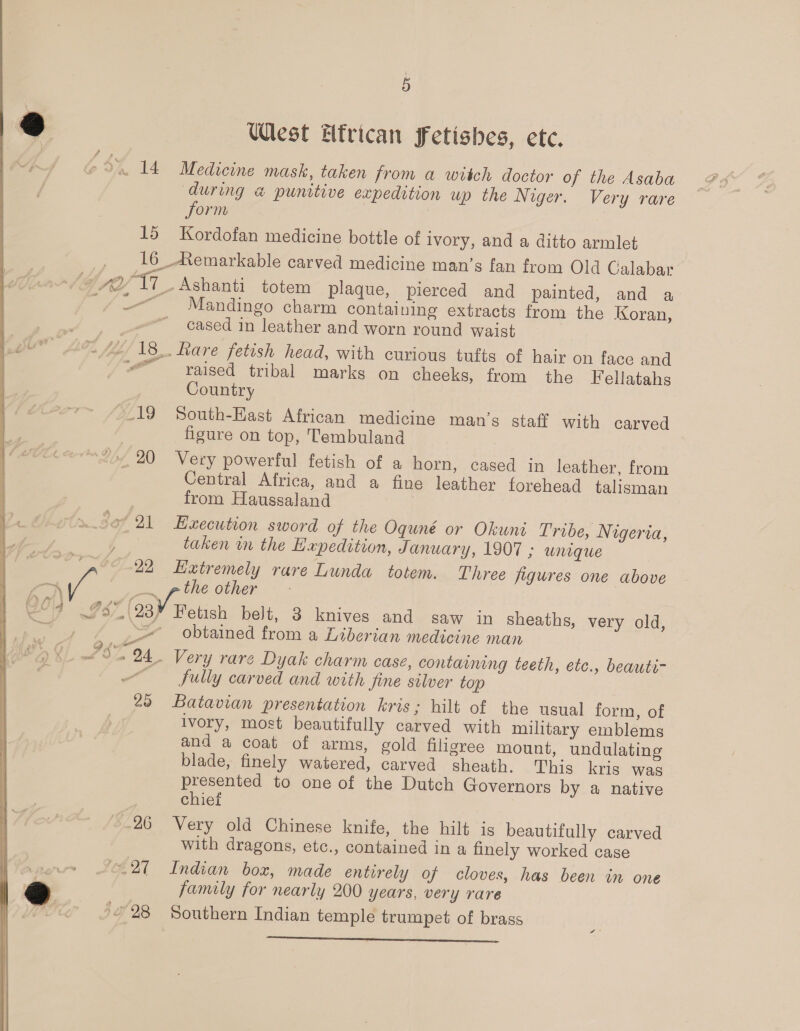 5
West African Fetishes, etc.
14 Medicine mask, taken from a witch doctor of the Asaba
during a punitive expedition up the Niger. Very rare
form
15 Kordofan medicine bottle of ivory, and a ditto armlet
16 Remarkable carved medicine man's fan from Old Calabar
17 Ashanti totem plaque, pierced and painted, and a
Mandingo charm containing extracts from the Koran,
cased in leather and worn round waist
18 Rare fetish head, with curious tufts of hair on face and
raised tribal marks on cheeks, from the Fellatahs
Country
19 South-East African medicine man's staff with carved
figure on top, Tembuland
20 Very powerful fetish of a horn, cased in leather, from
Central Africa, and a fine leather forehead talisman
from Haussaland
21 Execution sword of the Oguné or Okuni Tribe, Nigeria,
taken in the Expedition, January, 1907 ; unique
22 Extremely rare Lunda totem. Three figures one above
the other
23 Fetish belt, 3 knives and saw in sheaths, very old,
obtained from a Liberian medicine man
24 Very rare Dyak charm case, containing teeth, etc., beauti-
fully carved and with fine silver top
25 Batavian presentation kris; hilt of the usual form, of
ivory, most beautifully carved with military emblems
and a coat of arms, gold filigree mount, undulating
blade, finely watered, carved sheath. This kris was
presented to one of the Dutch Governors by a native
chief
26 Very old Chinese knife, the hilt is beautifully carved
with dragons, etc., contained in a finely worked case
27 Indian box, made entirely of cloves, has been in one
family for nearly 200 years, very rare
28 Southern Indian temple trumpet of brass